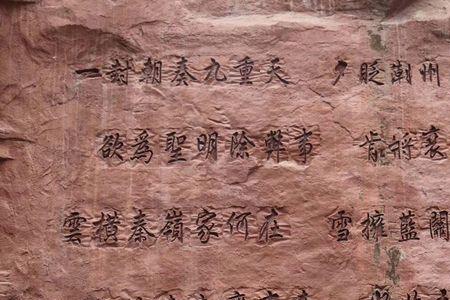 一封朝奏九重天 夕貶潮州
欲為聖明除弊事 肯將衰
雲橫秦嶺家何在 雪擁藍關